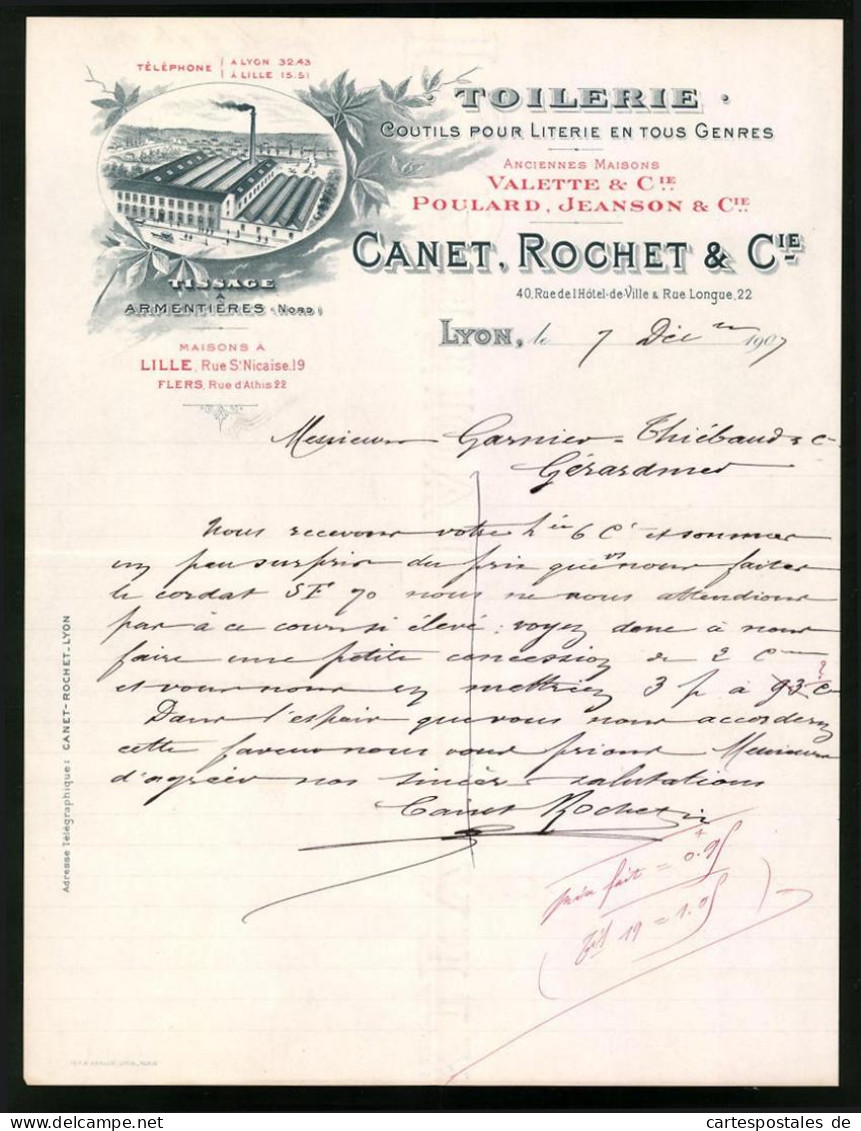 TÉLÉPHONE
A LYON 32.43
À LILLE 15.51
· TOILERIE ·
COUTILS POUR LITERIE EN TOUS GENRES
ANCIENNES MAISONS
VALETTE & CIE
POULARD, JEANSON & CIE
CANET, ROCHET & CIE
40, Rue de l'Hôtel-de-Ville & Rue Longue, 22
TISSAGE
À
ARMENTIÈRES (NORD)
MAISONS À
LILLE, Rue St Nicaise. 19
FLERS, Rue d'Athis 22
LYON, le 7 Décre 1907
Messieurs Garnier-Thiébaud & C
Gérardmer
Nous recevons votre et sommes
un peu surpris du prix que vous nous faites
le cordat SF 70 nous ne nous attendions
pas à ce cours si élevé : voyez donc à nous
faire une petite concession de 2 C
et vous nous en mettriez 3 p à 93 c
Dans l'espoir que vous nous accorderez
cette faveur nous vous prions Messieurs
d'agréer nos sincères salutations
Canet Rochet
prix fait = 0.95
19 = 1.05
Adresse Télégraphique: CANET-ROCHET-LYON
cartespostales de